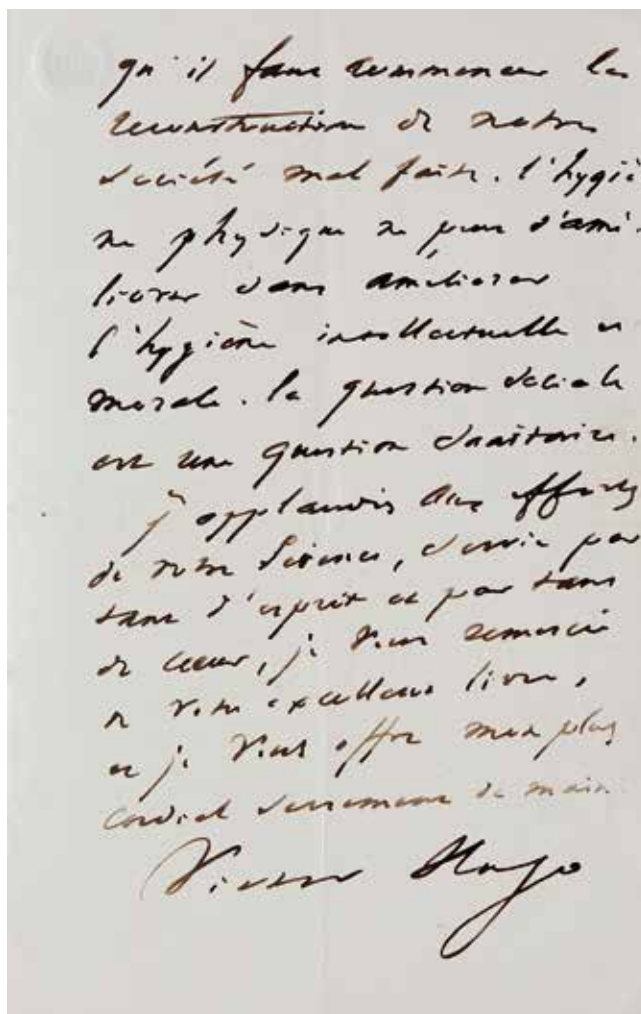 qu'il faut commencer la
reconstruction de notre
société mal faite. l'hygiè
ne physique ne peut s'amé-
liorer sans améliorer
l'hygiène intellectuelle et
morale. la question sociale
est une question sanitaire.
j'applaudis aux efforts
de votre science, servie par
tant d'esprit et par tant
de cœur, je vous remercie
de votre excellent livre,
et je vous offre mon plus
cordial serrement de main.
Victor Hugo